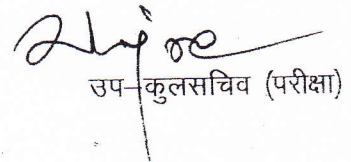 उप-कुलसचिव (परीक्षा)